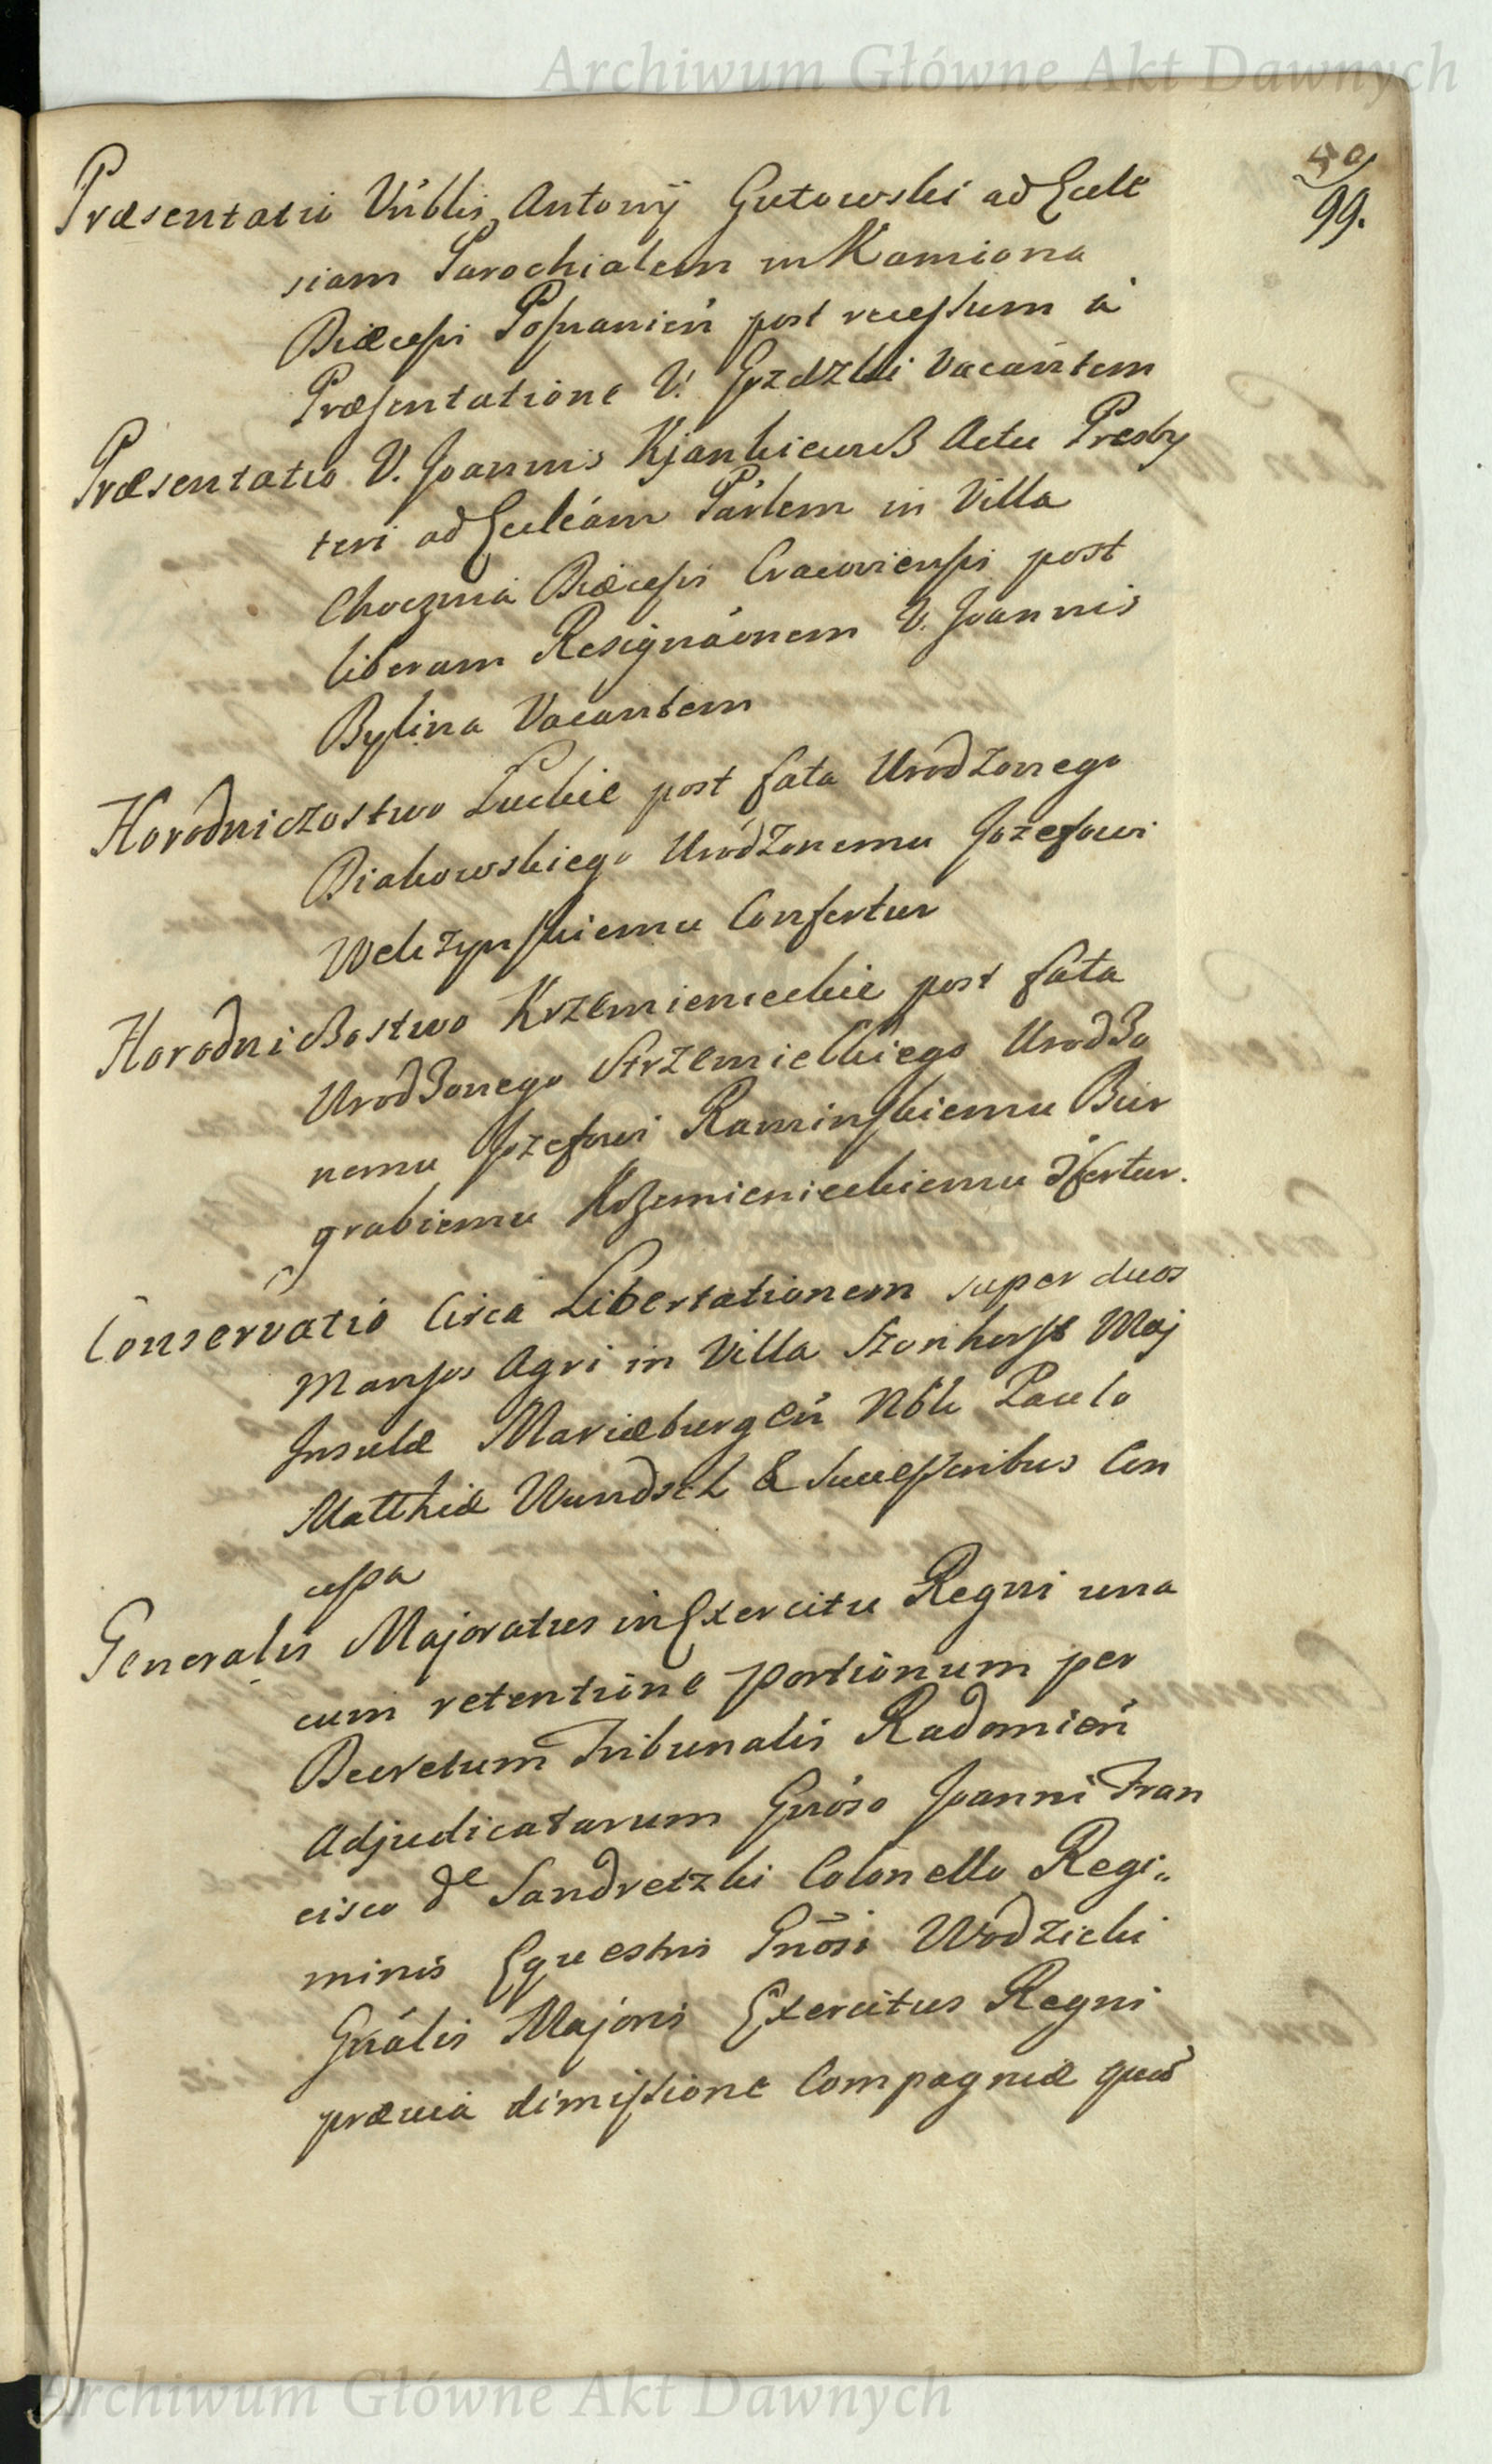 Archiwum Główne Akt Dawnych
99.
Præsentatio Vńblis Antonÿ Gutowski ad Eccle
siam Parochialem in Kamiona
Diæcesi Posnanień post recessum à
Præsentatione V. Gzdzki Vacantem
Præsentatio V. Joannis Kjankiewicz Actu Presby
teri ad Eccleám Párlem in Villa
Chocznia Diæcesis Cracoviensis post
liberam Resignáonem V. Joannis
Bylina Vacantem
Horodniczostwo Luckie post fata Urodzonego
Biakowskiego Urodzonemu Jozefowi
Welczynskiemu Confertur
Horodniczostwo Krzemienieckie post fata
Urodzonego Strzemieckiego Urodzo
nemu Jozefowi Kaminskiemu Bur
grabiemu Krzemienieckiemu Cfertur.
Conservatio Circa Libertationem super duos
Mansos Agri in Villa Szonhorst Maj
Insulæ Mariæburgeń Nbli Paulo
Matthiæ Wundsch & Successoribus Con
cessa
Generalis Majoratus in Exercitu Regni una
cum retentione portionum per
Decretum Tribunalis Radomień
Adjudicatarum Gnóso Joanni Fran
cisco de Sandretzki Colonello Regi„
minis Equestris Gnósi Wodzicki
Gnális Majoris Exercitus Regni
prævia dimissione Compagniæ quæ
Archiwum Główne Akt Dawnych